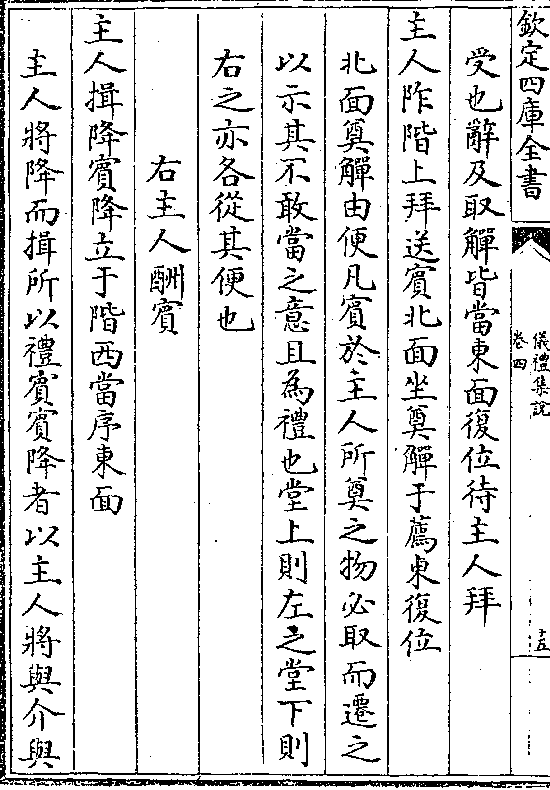 欽定四庫全書
儀禮集說
卷四
十五
受也辭及取觶皆當東面復位待主人拜
主人阼階上拜送賓北面坐奠觶于薦東復位
北面奠觶由便凡賓於主人所奠之物必取而遷之
以示其不敢當之意且為禮也堂上則左之堂下則
右之亦各從其便也
右主人酬賓
主人揖降賓降立于階西當序東面
主人將降而揖所以禮賓賓降者以主人將與介與